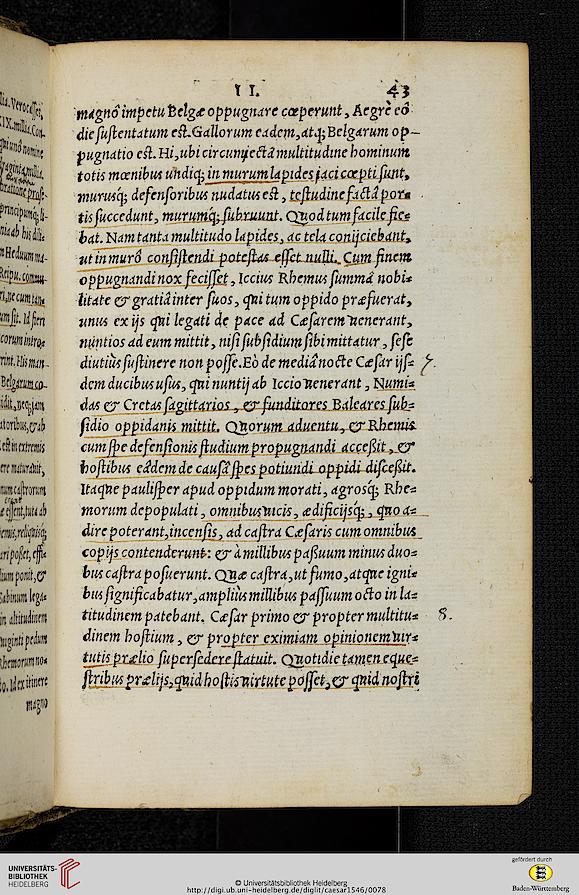 II. 43
magnô impetu Belgæ oppugnare cœperunt, Aegrè eô
die ſuſtentatum eſt. Gallorum eadem, atq; Belgarum op-
pugnatio eſt. Hi, ubi circumiectâ multitudine hominum
totis mœnibus undiq; in murum lapides iaci cœpti ſunt,
murusq; defenſoribus nudatus eſt, teſtudine factâ por-
tis ſuccedunt, murumq; ſubruunt. Quod tum facile fie-
bat. Nam tanta multitudo lapides, ac tela conijciebant,
ut in murô conſiſtendi poteſtas eſſet nulli. Cum finem
oppugnandi nox feciſſet, Iccius Rhemus ſummâ nobi-
litate & gratiâ inter ſuos, qui tum oppido præfuerat,
unus ex ijs qui legati de pace ad Cæſarem uenerant,
nuntios ad eum mittit, niſi ſubſidium ſibi mittatur, ſeſe
diutiùs ſuſtinere non poſſe. Eò de mediâ nocte Cæſar ijſ-
7.
dem ducibus uſus, qui nuntij ab Iccio uenerant, Numi-
das & Cretas ſagittarios, & funditores Baleares ſub-
ſidio oppidanis mittit. Quorum aduentu, & Rhemis
cum ſpe defenſionis ſtudium propugnandi acceßit, &
hoſtibus eâdem de cauſâ ſpes potiundi oppidi diſceßit.
Itaque pauliſper apud oppidum morati, agrosq; Rhe-
morum depopulati, omnibus uicis, ædificijsq;, quo a-
dire poterant, incenſis, ad caſtra Cæſaris cum omnibus
copijs contenderunt: & à millibus paßuum minus duo-
bus caſtra poſuerunt. Quæ caſtra, ut fumo, atque igni-
bus ſignificabatur, ampliùs millibus paſſuum octo in la-
titudinem patebant. Cæſar primo & propter multitu-
8.
dinem hoſtium, & propter eximiam opinionem uir-
tutis prælio ſuperſedere ſtatuit. Quotidie tamen eque-
ſtribus prælijs, quid hoſtis uirtute poſſet, & quid noſtri
magno
UNIVERSITÄTS-
BIBLIOTHEK
HEIDELBERG
© Universitätsbibliothek Heidelberg
http://digi.ub.uni-heidelberg.de/diglit/caesar1546/0078
gefördert durch
Baden-Württemberg